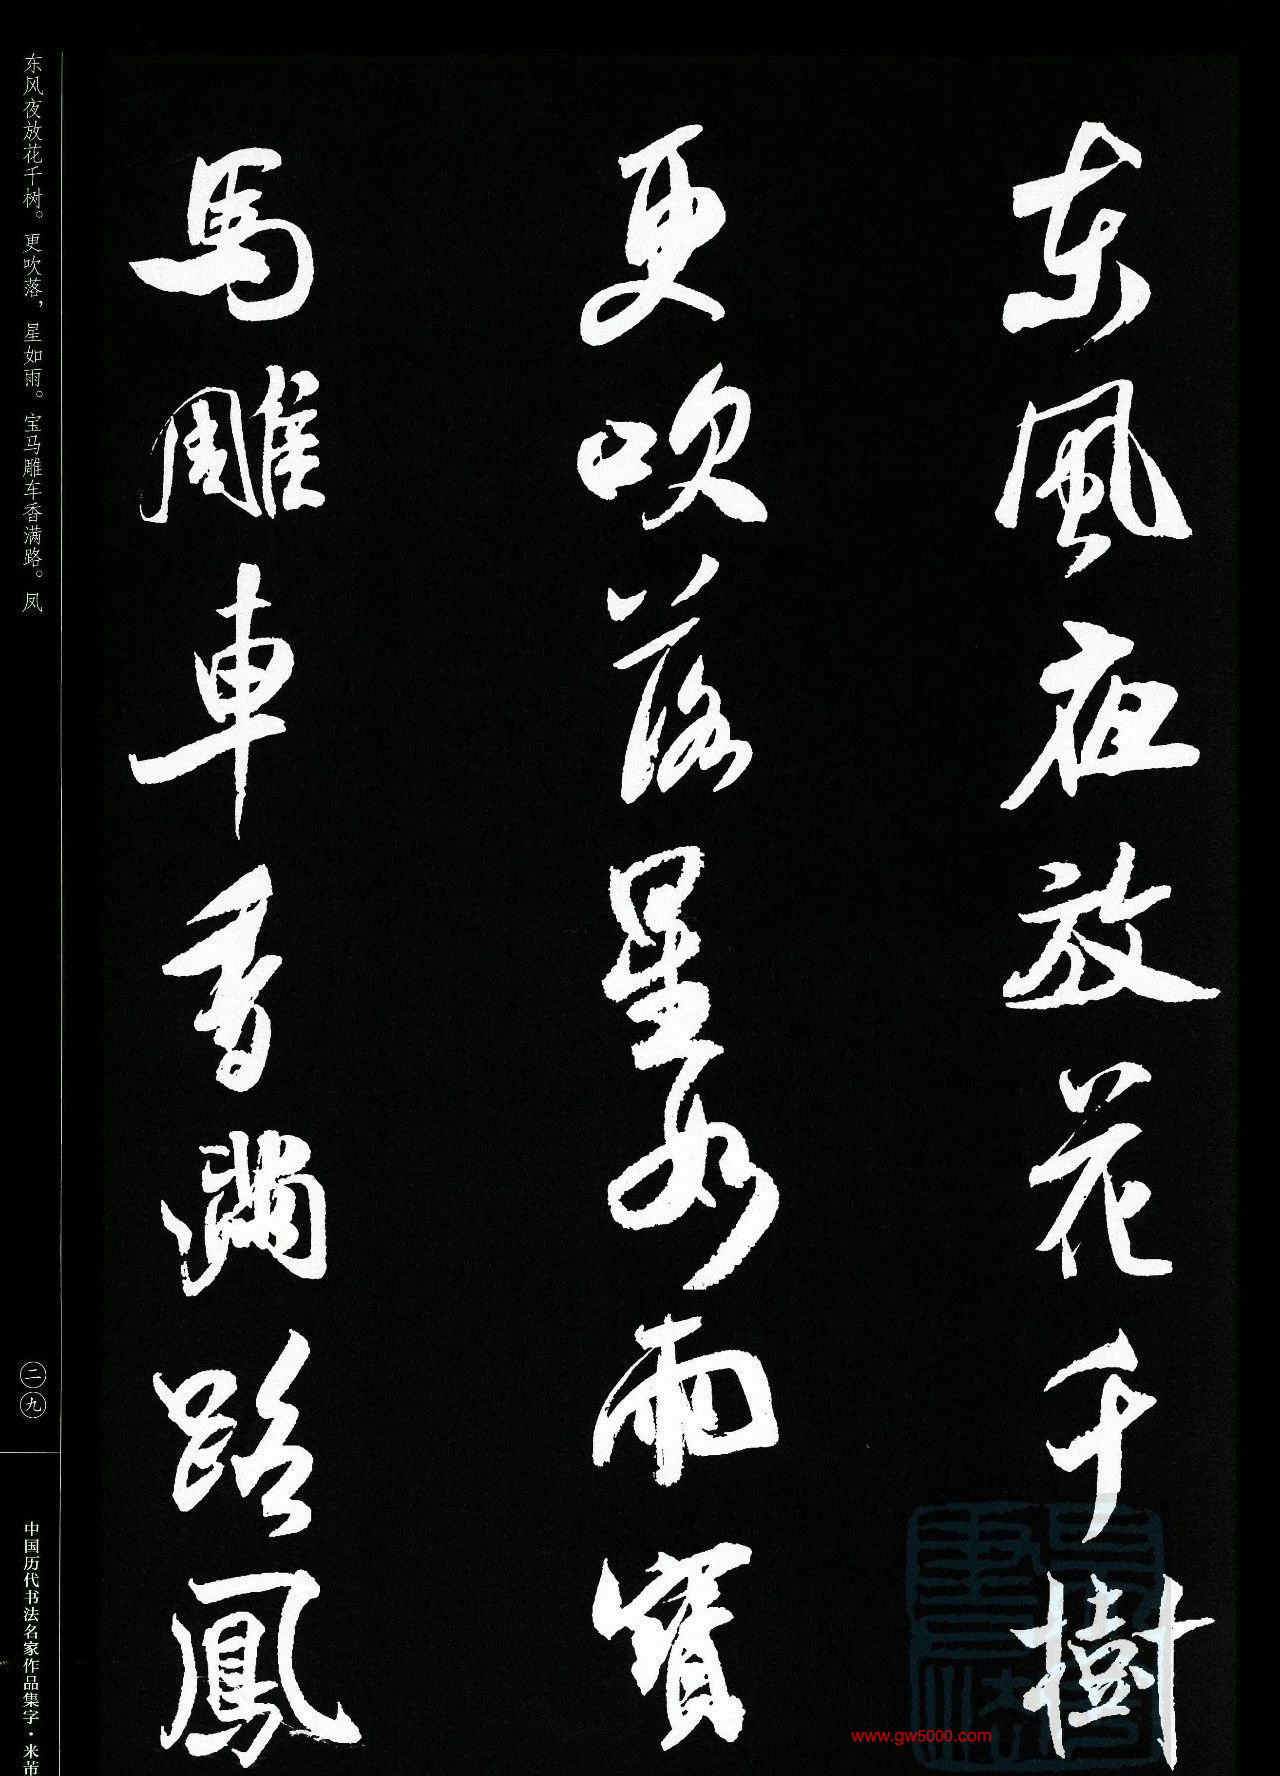 東風夜放花千樹
更吹落星如雨寶
馬雕車香滿路鳳
东风夜放花千树。更吹落，星如雨。宝马雕车香满路。凤
二九
中国历代书法名家作品集字·米芾
www.gw5000.com